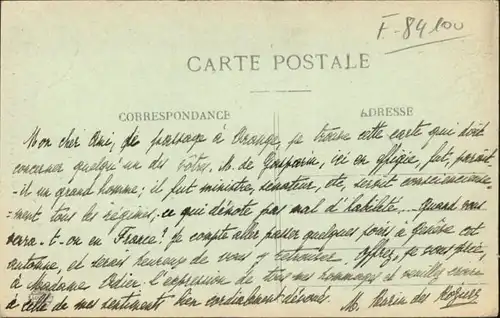 F-84100
CARTE POSTALE
CORRESPONDANCE
ADRESSE
Mon cher Ami, de passage à Orange, je trouve cette carte qui doit
concerner quelqu'un des vôtres. M. de Gasparin, ici en effigie, fut, paraît
-il un grand homme; il fut ministre, senateur, etc, servit conscienscieuse-
=ment tous les régimes, ce qui dénote pas mal d'habileté... Quand vous
verra-t-on en France? Je compte aller passer quelques jours à Genève cet
automne, et serais heureux de vous y rencontrer. Offrez, je vous prie,
à Madame Odier l'expression de tous mes hommages et veuillez croire
à celle de mes sentiments bien cordialement dévoués.
M. Marin des